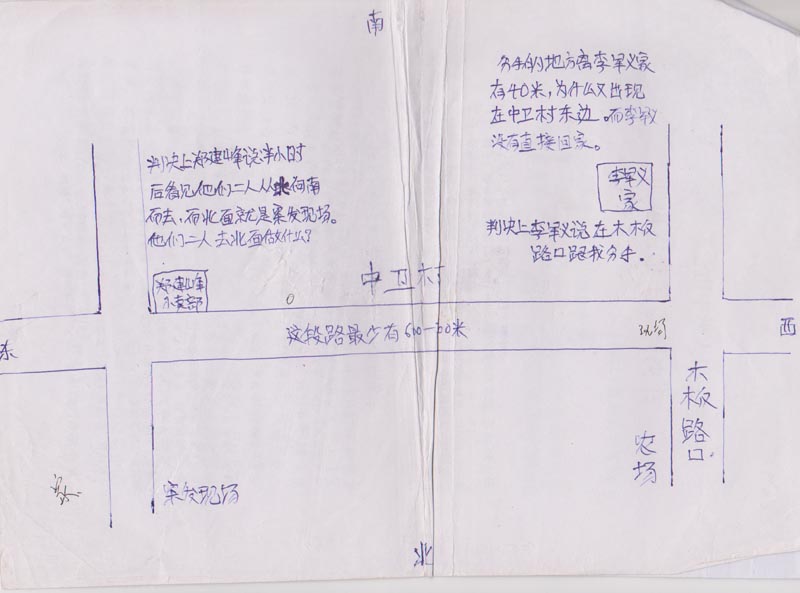 南
分手的地方离李军义家
有40米,为什么又出现
在中卫村东边。而李军义
没有直接回家。
李军义
家
判决上李军义说在木板
路口跟我分手.
判决上郑建峰说半小时
后看见他们二人从北向南
而去,而北面就是案发现场。
他们二人去北面做什么?
郑建峰
小卖部
中卫村
东
这段路最少有600-700米
西
木板路口.
农场
案发现场
北